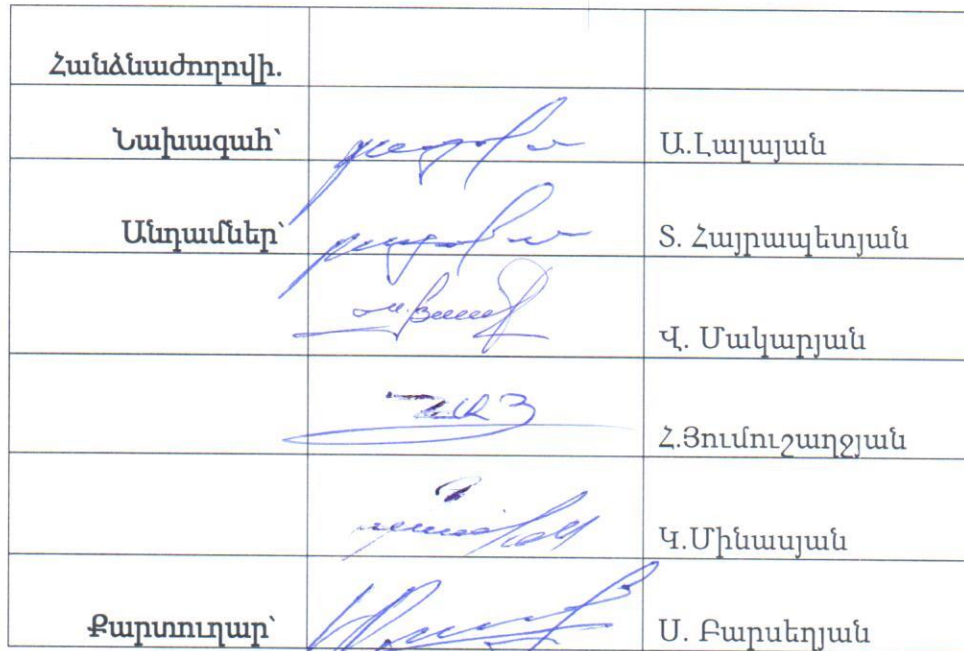 Հանձնաժողովի.
Նախագահ՝ Ա.Լալայան
Անդամներ՝ Տ. Հայրապետյան
Վ. Մակարյան
Հ.Յումուշաղջյան
Կ.Մինասյան
Քարտուղար՝ Ս. Բարսեղյան